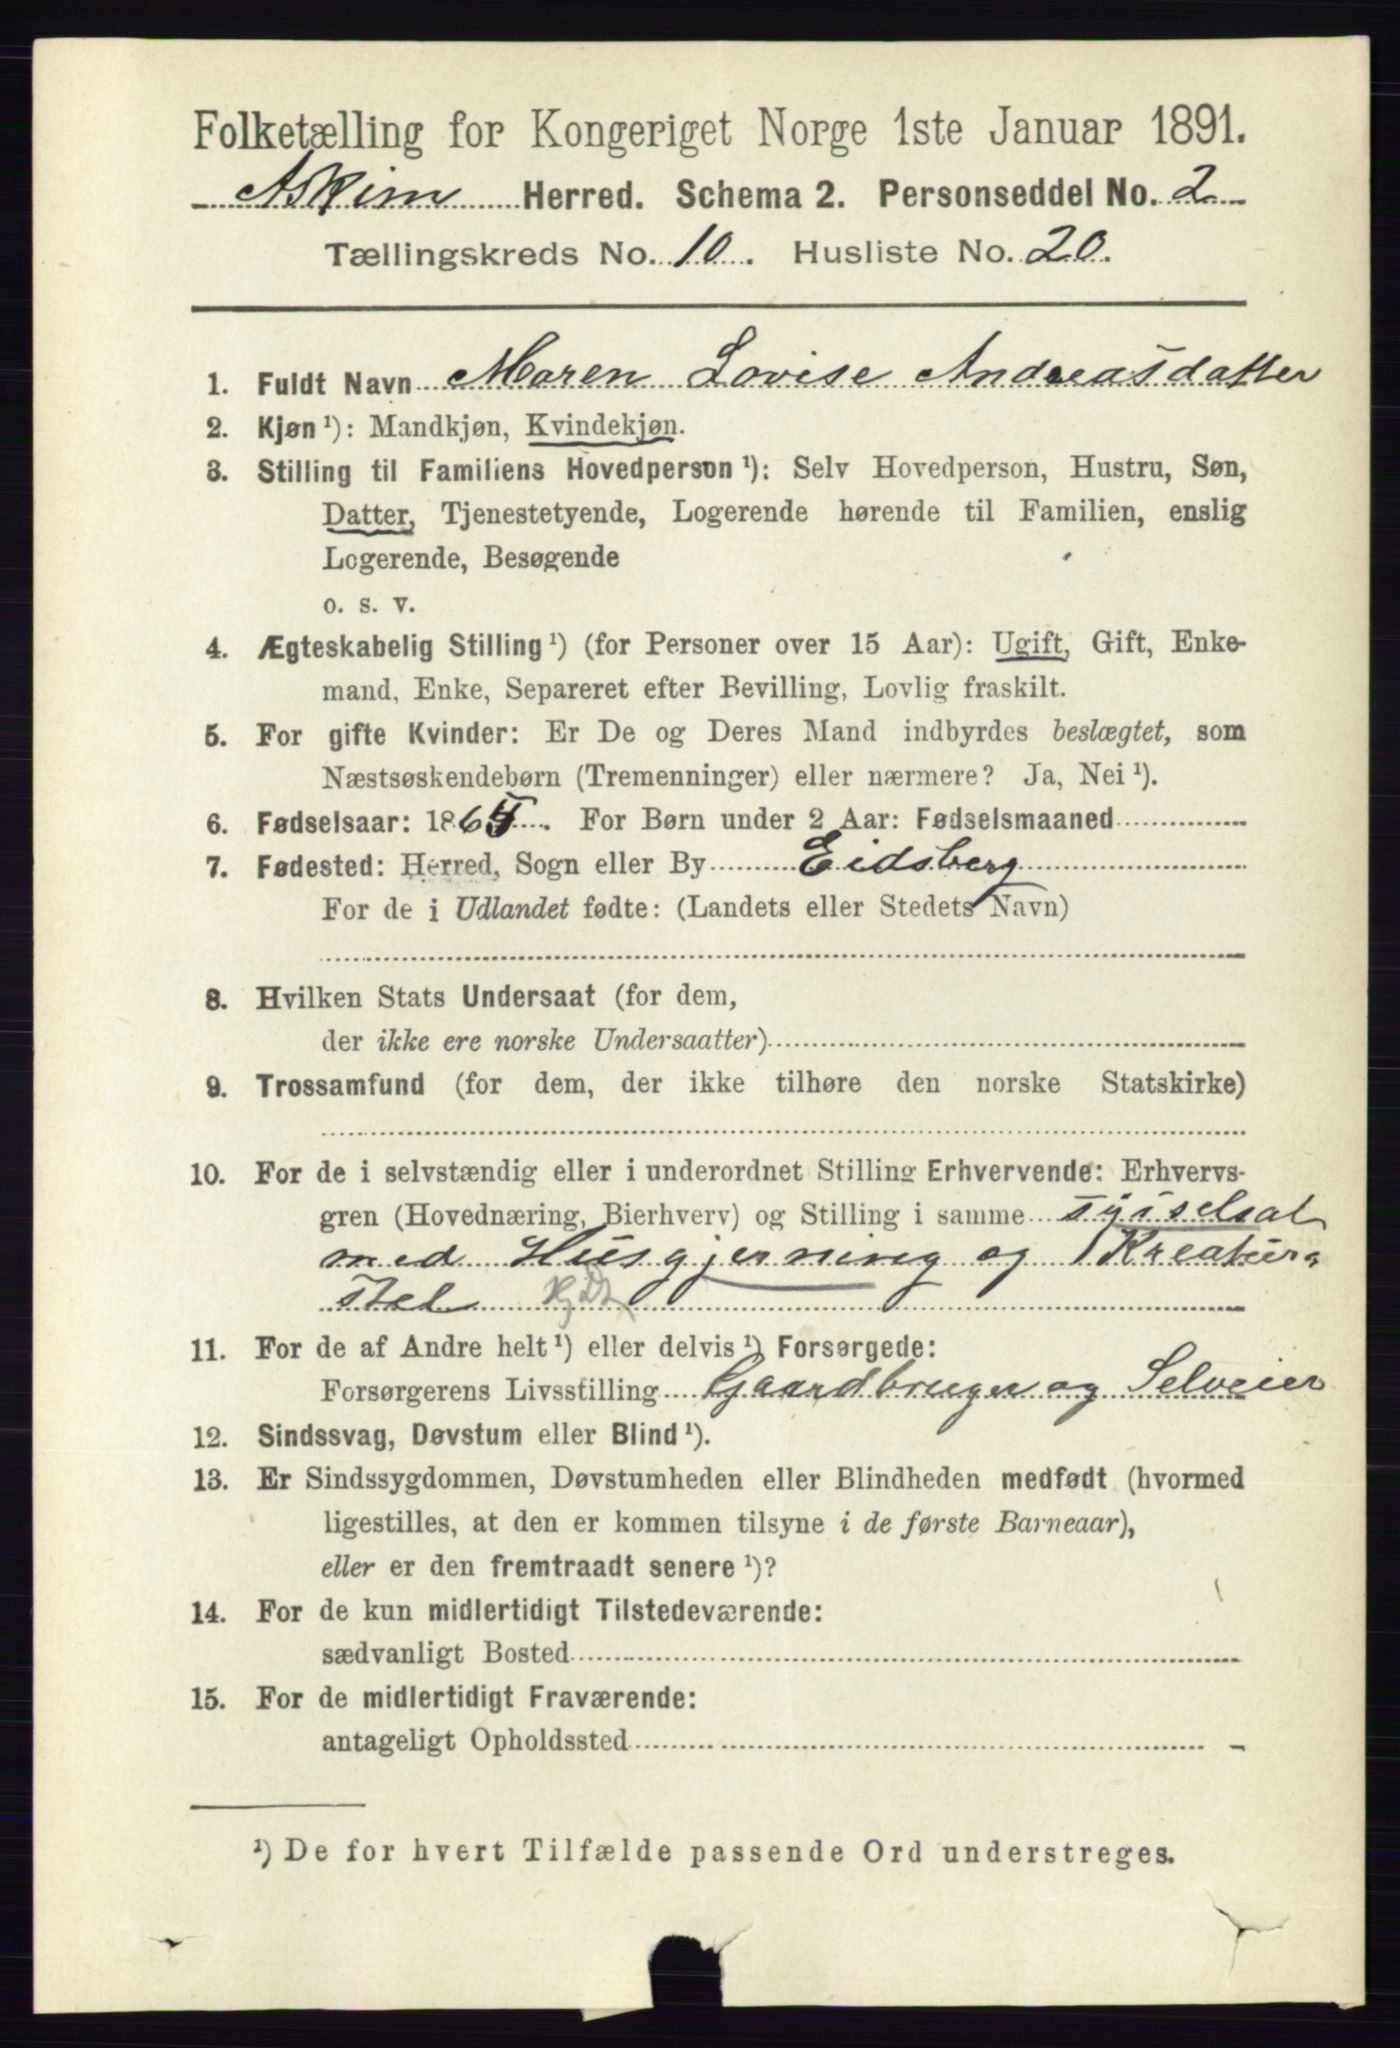 Folketælling for Kongeriget Norge 1ste Januar 1891.
Askim Herred. Schema 2. Personseddel No. 2
Tællingskreds No. 10. Husliste No. 20.
1. Fuldt Navn Maren Lovise Andreasdatter
2. Kjøn ¹): Mandkjøn, Kvindekjøn.
3. Stilling til Familiens Hovedperson ¹): Selv Hovedperson, Hustru, Søn,
Datter, Tjenestetyende, Logerende hørende til Familien, enslig
Logerende, Besøgende
o. s. v.
4. Ægteskabelig Stilling ¹) (for Personer over 15 Aar): Ugift, Gift, Enke-
mand, Enke, Separeret efter Bevilling, Lovlig fraskilt.
5. For gifte Kvinder: Er De og Deres Mand indbyrdes beslægtet, som
Næstsøskendebørn (Tremenninger) eller nærmere? Ja, Nei ¹).
6. Fødselsaar: 1865. For Børn under 2 Aar: Fødselsmaaned
7. Fødested: Herred, Sogn eller By Eidsberg
For de i Udlandet fødte: (Landets eller Stedets Navn)
8. Hvilken Stats Undersaat (for dem,
der ikke ere norske Undersaatter)
9. Trossamfund (for dem, der ikke tilhøre den norske Statskirke)
10. For de i selvstændig eller i underordnet Stilling Erhvervende: Erhvervs-
gren (Hovednæring, Bierhverv) og Stilling i samme sysselsat
med Husgjerning og Kreatur-
stel
11. For de af Andre helt ¹) eller delvis ¹) Forsørgede:
Forsørgerens Livsstilling Gaardbruger og Selveier
12. Sindssvag, Døvstum eller Blind ¹).
13. Er Sindssygdommen, Døvstumheden eller Blindheden medfødt (hvormed
ligestilles, at den er kommen tilsyne i de første Barneaar),
eller er den fremtraadt senere ¹)?
14. For de kun midlertidigt Tilstedeværende:
sædvanligt Bosted
15. For de midlertidigt Fraværende:
antageligt Opholdssted
¹) De for hvert Tilfælde passende Ord understreges.